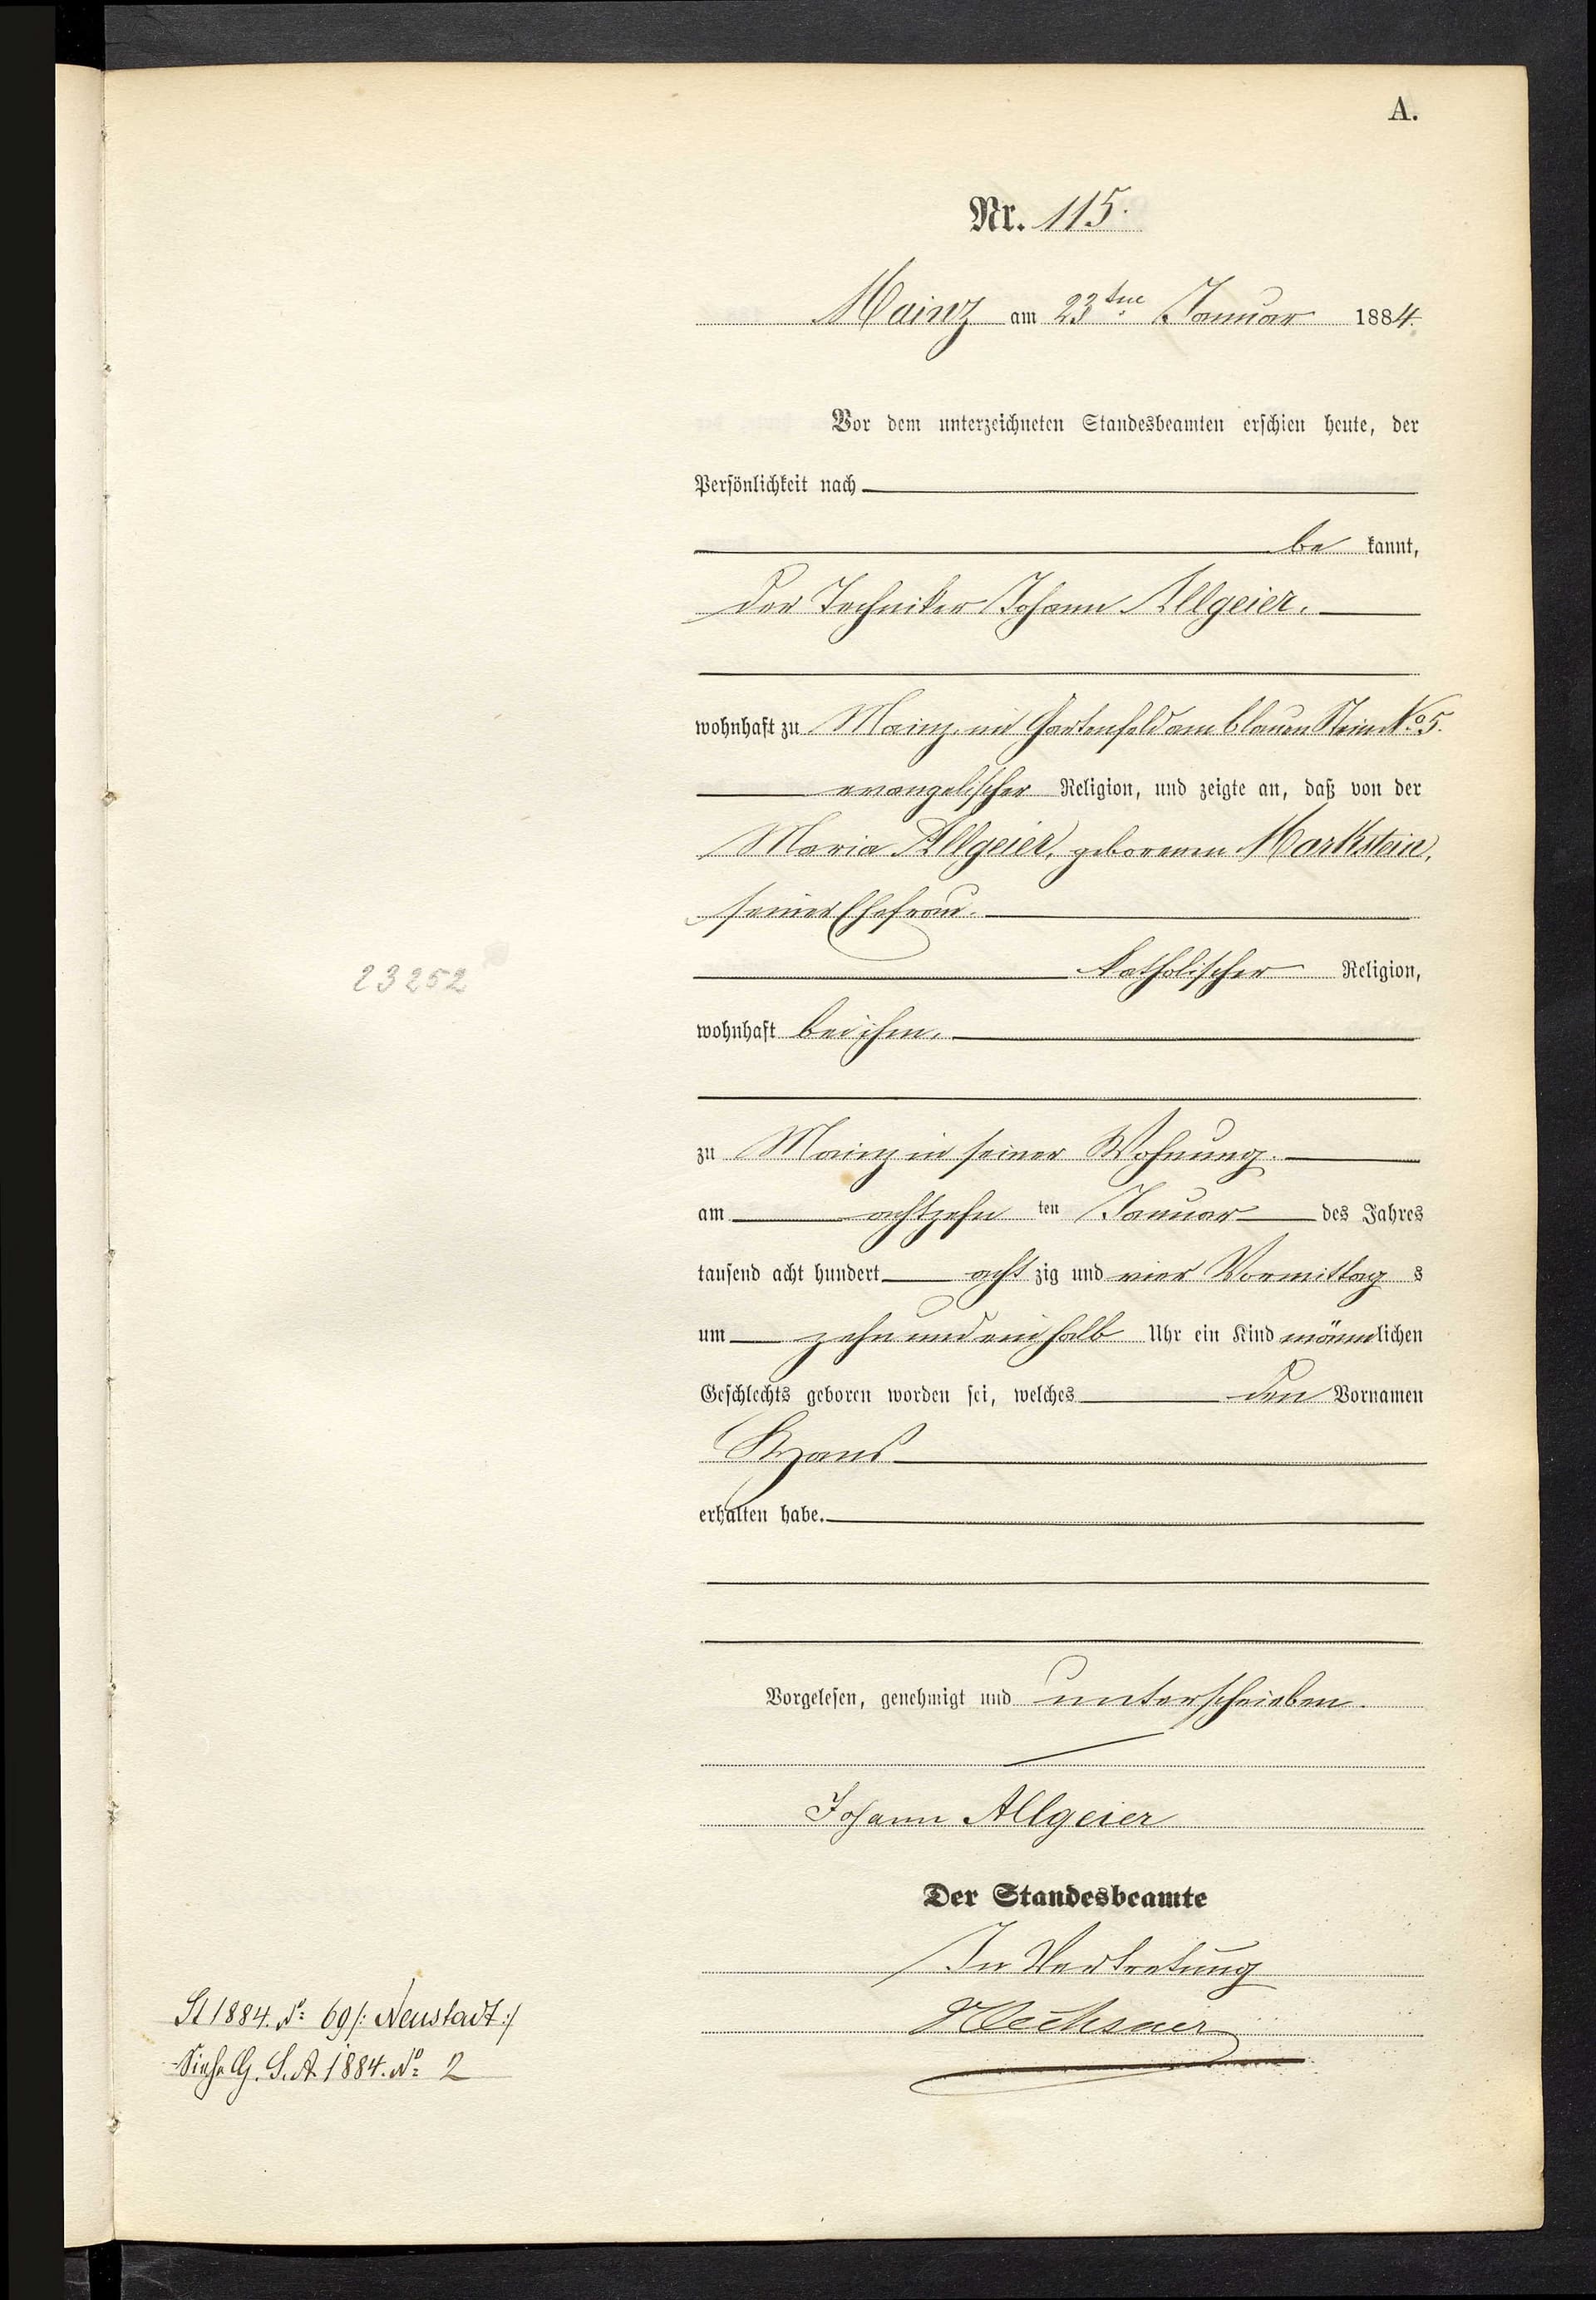 A.
Nr. 115.
Mainz am 23ten Januar 1884.
Vor dem unterzeichneten Standesbeamten erschien heute, der
Persönlichkeit nach
be kannt,
der Techniker Johann Allgeier,
wohnhaft zu Mainz, im Gartenfeld am blauen Stein No 5.
evangelischer Religion, und zeigte an, daß von der
Maria Allgeier, geborenen Markstein,
seiner Ehefrau.
katholischer Religion,
23252
wohnhaft bei ihm,
zu Mainz in seiner Wohnung.
am achtzehn ten Januar des Jahres
tausend acht hundert acht zig und vier Vormittag s
um zehn und ein halb Uhr ein Kind männlichen
Geschlechts geboren worden sei, welches den Vornamen
Hans
erhalten habe.
Vorgelesen, genehmigt und unterschrieben.
Johann Allgeier
Der Standesbeamte
In Vertretung
St 1884. No 69 /: Neustadt :/
Siehe G. S. A. 1884. No 2